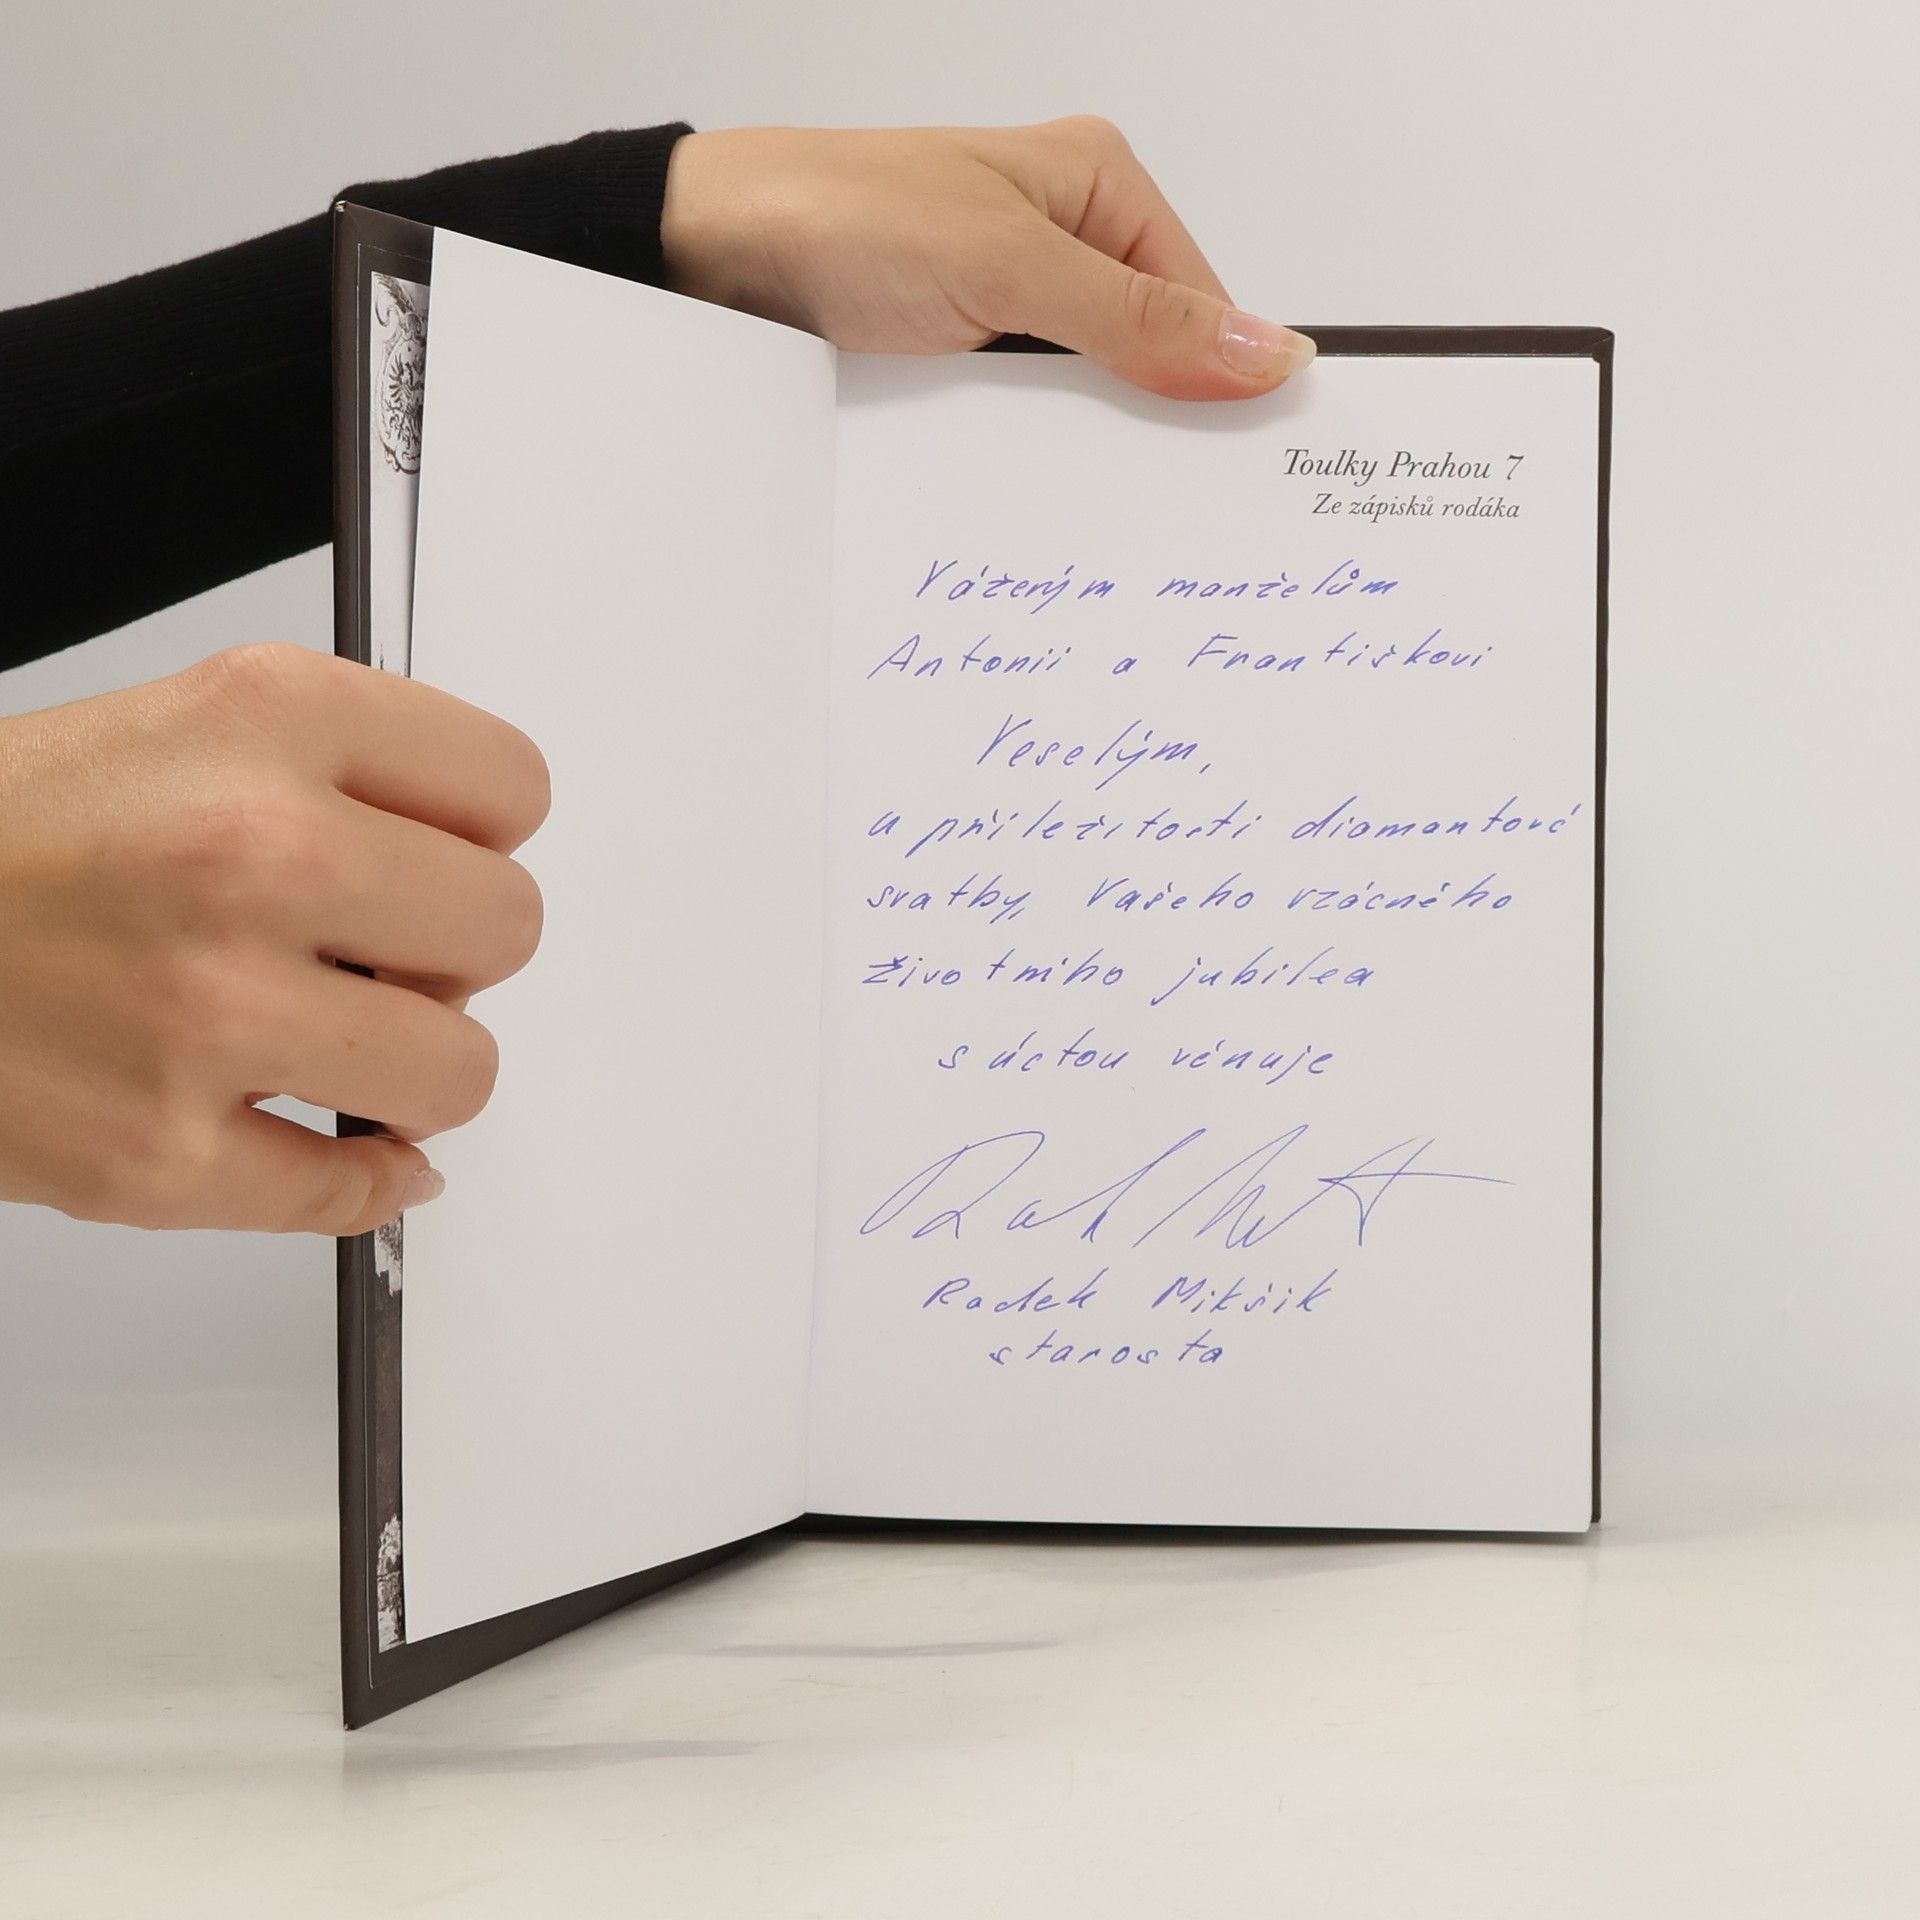 Toulky Prahou 7
Ze zápisků rodáka
Váženým manželům
Antonii a Františkovi
Veselým,
u příležitosti diamantové
svatby, Vašeho vzácného
životního jubilea
s úctou věnuje
Radek Mikšik
starosta